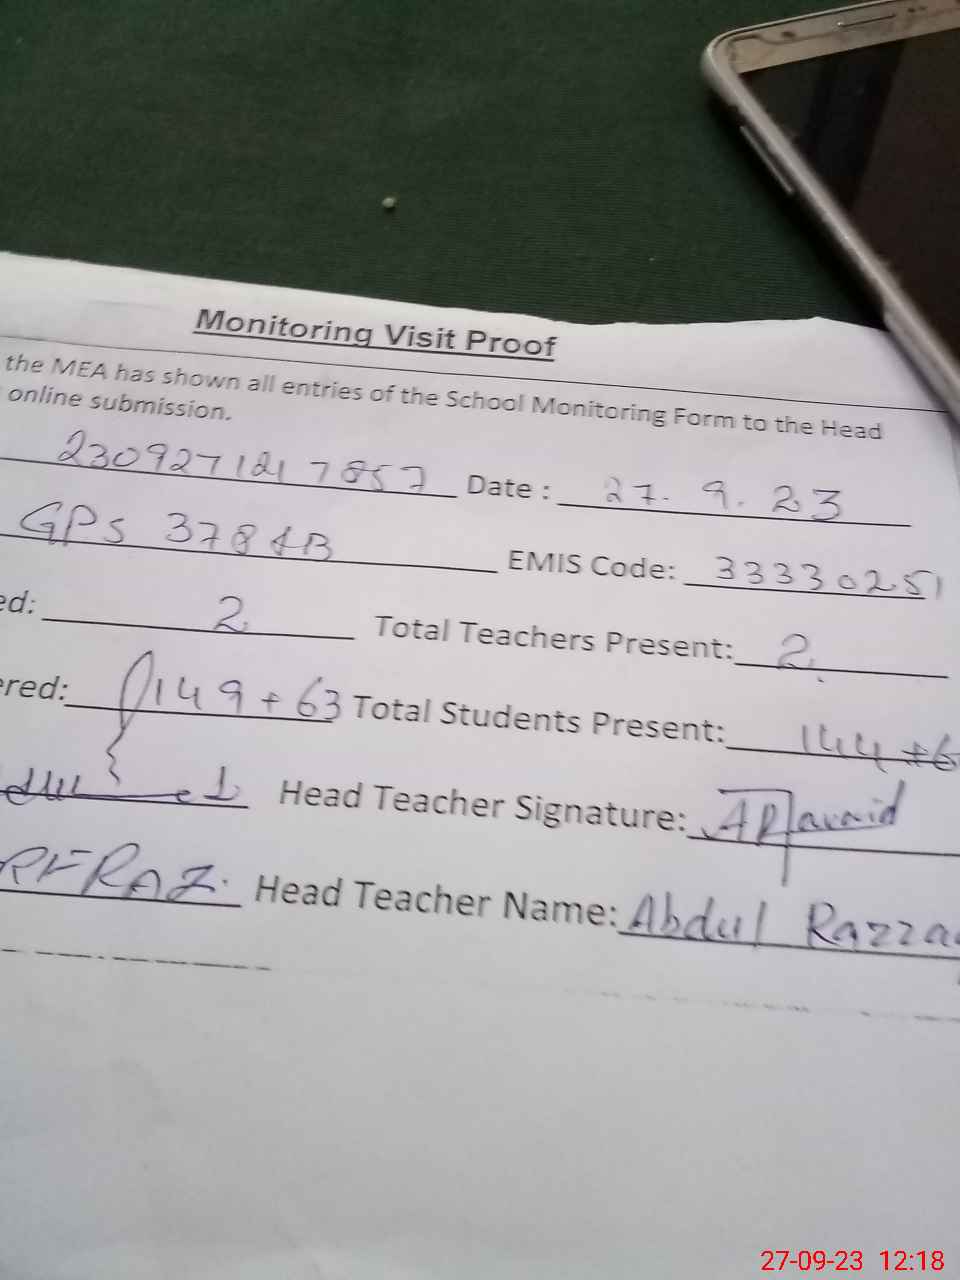 Monitoring Visit Proof
the MEA has shown all entries of the School Monitoring Form to the Head
online submission.
2309271217857 Date : 27. 9. 23
GPS 378 EMIS Code: 33330251
ed: 2 Total Teachers Present: 2
ered: 149 + 63 Total Students Present: 144 + 6
Head Teacher Signature:
RFRAZ. Head Teacher Name: Abdul Razza
27-09-23 12:18